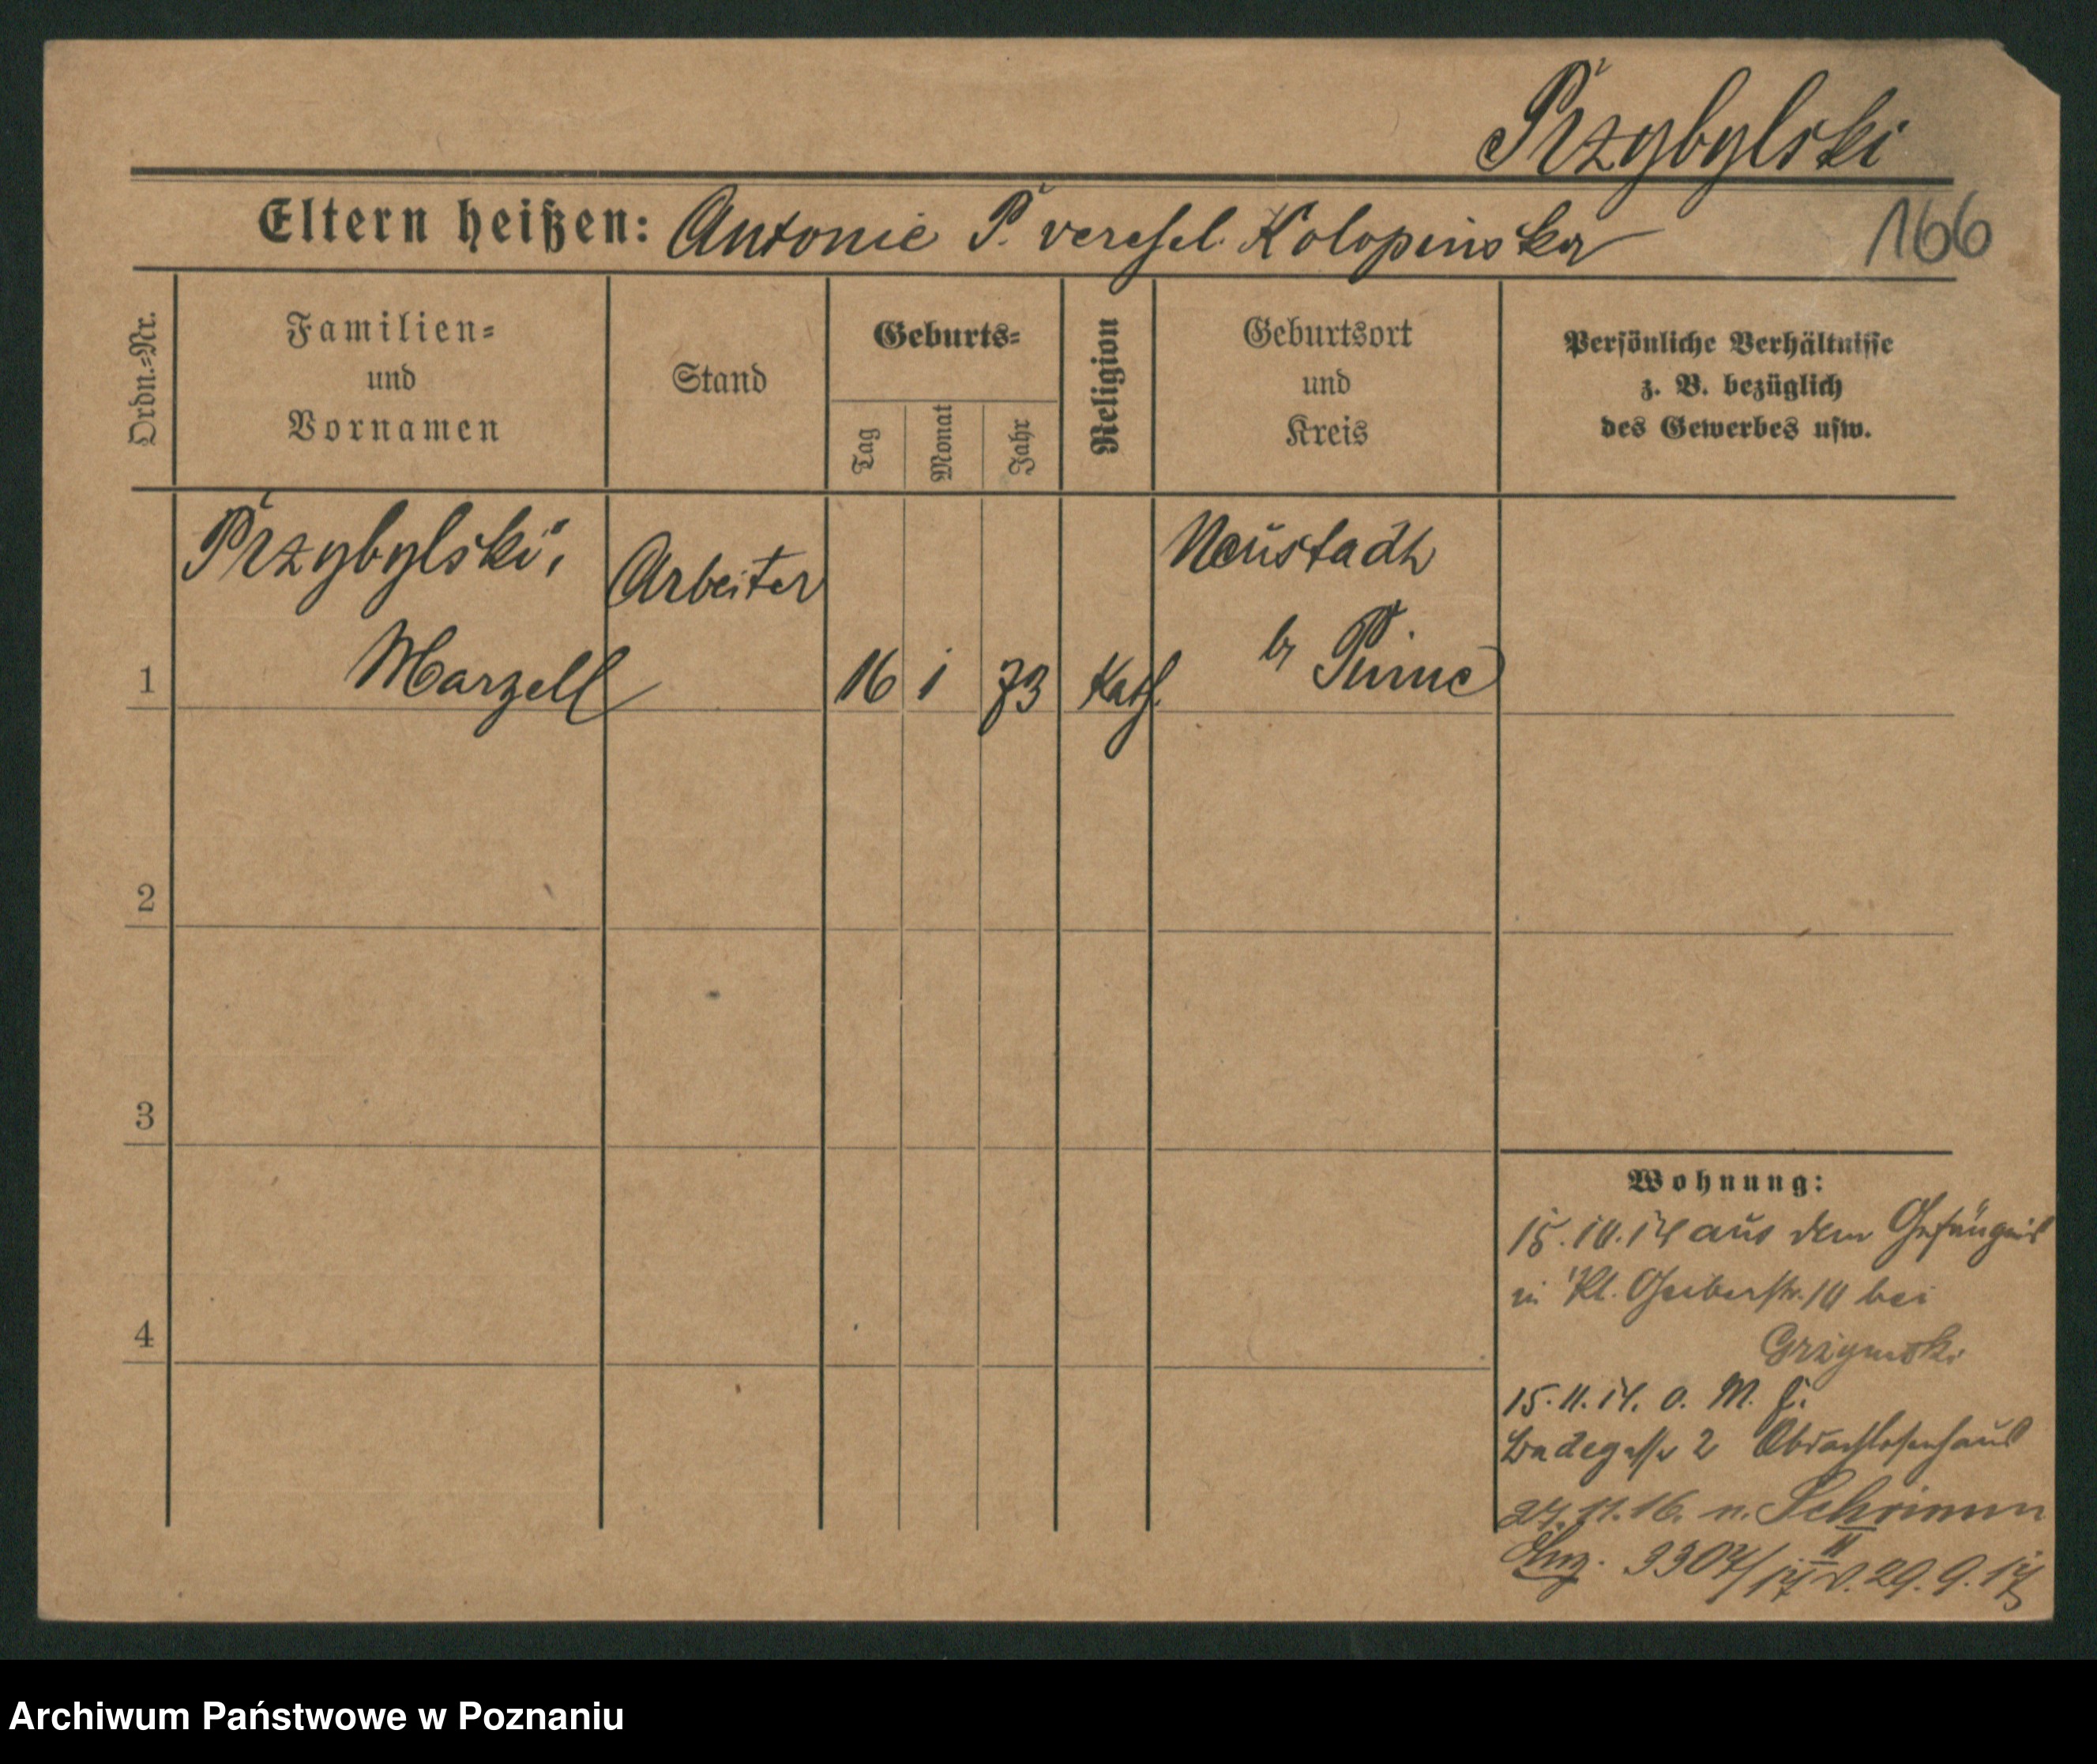 Przybylski
Eltern heißen: Antonie P. verehel. Kolopinska
166
Ordn.=Nr.
Familien=
und
Vornamen
Stand
Geburts=
Tag
Monat
Jahr
Religion
Geburtsort
und
Kreis
Persönliche Verhältnisse
z. B. bezüglich
des Gewerbes usw.
Przybylski,
Marzell
Arbeiter
16 1 73 Kath.
Neustadt
b Pinne
1
2
3
4
Wohnung:
15.10.14 aus dem Gefängnis
in Kl. Gerberstr. 10 bei
Grzymski
15.11.14. o. M. f.
Badegasse 2 Obdachlosenhaus
27.11.16. n. Schrimm
3307/17 II v. 29.9.17
Archiwum Państwowe w Poznaniu